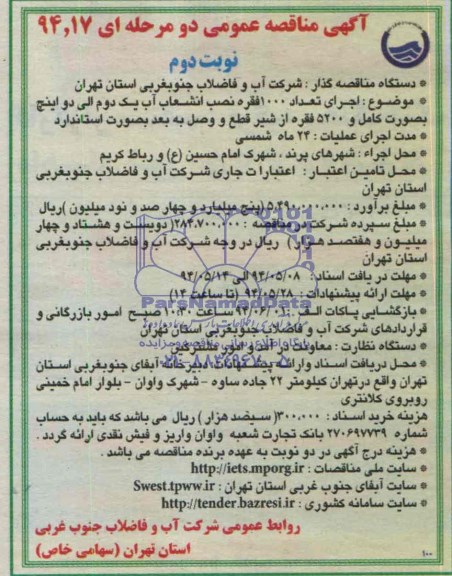 آگهی مناقصه عمومی دو مرحله ای ۹۴,۱۷
نوبت دوم
* دستگاه مناقصه گذار : شرکت آب و فاضلاب جنوبغربی استان تهران
* موضوع : اجرای تعداد ۱۰۰۰فقره نصب انشعاب آب یک دوم الی دو اینچ
بصورت کامل و ۵۲۰۰ فقره از شیر قطع و وصل به بعد بصورت استاندارد
* مدت اجرای عملیات : ۲۴ ماه شمسی
* محل اجراء : شهرهای پرند ، شهرک امام حسین (ع) و رباط کریم
* محل تامین اعتبار : اعتبارات جاری شرکت آب و فاضلاب جنوبغربی
استان تهران
* مبلغ برآورد : ۵,۴۹۰,۰۰۰,۰۰۰ (پنج میلیارد و چهار صد و نود میلیون )ریال
* مبلغ سپرده شرکت در مناقصه : ۲۸۴,۷۰۰,۰۰۰( دویست و هشتاد و چهار
میلیون و هفتصد هزار ) ریال در وجه شرکت آب و فاضلاب جنوبغربی
استان تهران
* مهلت دریافت اسناد : ۹۴/۰۵/۰۸ الی ۹۴/۰۵/۱۴
* مهلت ارائه پیشنهادات : ۹۴/۰۵/۲۸ (تا ساعت ۱۴)
* بازگشایی پاکات الف : ۹۴/۰۶/۰۱ ساعت ۱۰:۳۰ صبح امور بازرگانی و
قراردادهای شرکت آب و فاضلاب جنوبغربی استان تهران
* دستگاه نظارت : معاونت درآمد و امور مشترکین
* محل دریافت اسناد وارائه پیشنهادات: دبیرخانه آبفای جنوبغربی استان
تهران واقع درتهران کیلومتر ۲۲ جاده ساوه - شهرک واوان - بلوار امام خمینی
روبروی کلانتری
هزینه خرید اسناد : ۳۰۰,۰۰۰( سیصد هزار ) ریال می باشد که باید به حساب
شماره ۲۷۰۶۹۷۷۳۹ بانک تجارت شعبه واوان واریز و فیش نقدی ارائه گردد .
* هزینه درج آگهی در دو نوبت به عهده برنده مناقصه می باشد .
* سایت ملی مناقصات : http://iets.mporg.ir
* سایت آبفای جنوب غربی استان تهران : Swest.tpww.ir
* سایت سامانه کشوری : http://tender.bazresi.ir
روابط عمومی شرکت آب و فاضلاب جنوب غربی
استان تهران (سهامی خاص)
۱۰۰
ParsNamadData